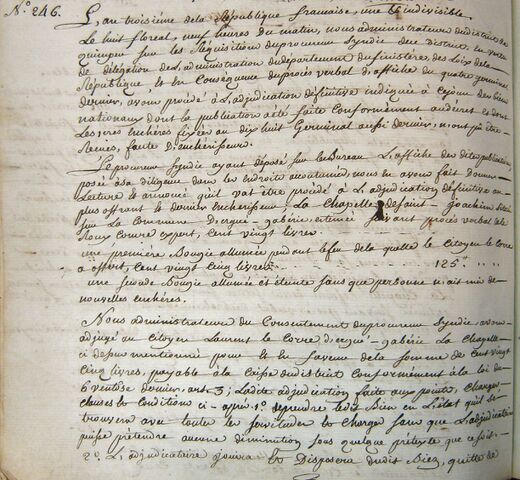 N.º 246.
L'an troisieme de la République francaise, une et indivisible.
Le huit floreal, neuf heures du matin, nous administrateurs du district de
quimper sur les Requisitions du procureur Syndic dece district, en vertu
de délégation de L'administration du département du finistère, des Loix dela
République, et en Conséquence du procès verbal d'affiche du quatre germinal
dernier, avons procédé à L'adjudication définitive indiquée à cejour des biens
nationaux dont la publication a été faite Conformément audécret et dont
Les 1res enchères fixées au dix huit Germinal aussi dernier, n'ont pu être
Recues, faute d'enchérisseur.
Le procureur Syndic ayant déposé sur le Bureau L'affiche des dites publications
posée asa diligence dans les endroits accoutumés, nous en avons fait donner
Lecture et annoncé qu'il vat être procédé à L'adjudication définitive au
plus offrant et dernier enchérisseur. La Chapelle de saint Joachim située
sur la Commune d'ergué-gabéric, estimée suivant procès verbal de le
Roux Couvre expert, Cent vingt livres.
une première Bougie allumée pendant le feu de la quelle le citoyen le Corre
a offert, Cent vingt Cinq livres. 125#. ,, ,,
une seconde Bougie allumée et éteinte sans que personne n'ait mis de
nouvelles enchères.
Nous administrateurs du Consentement du procureur Syndic, avons
adjugé au Citoyen Laurent le Corre d'ergué-gabéric La Chapelle
ci dessus mentionnée pour et en faveur de la somme de Cent vingt
Cinq livres, payable à la Caisse du district Conformément à la loi du
6 ventôse dernier, art. 3; Ladite adjudication faite aux points, Charges,
clauses et Conditions ci-après 1.º deprendre ledit Bien en L'état qu'il se
trouvera avec toutes les servitudes et Charges sans que L'adjudicataire
puisse prétendre aucune diminution sous quelque prétexte que ce soit.
2.º L'adjudicataire jouira et Disposera dudit Bien, quitte de